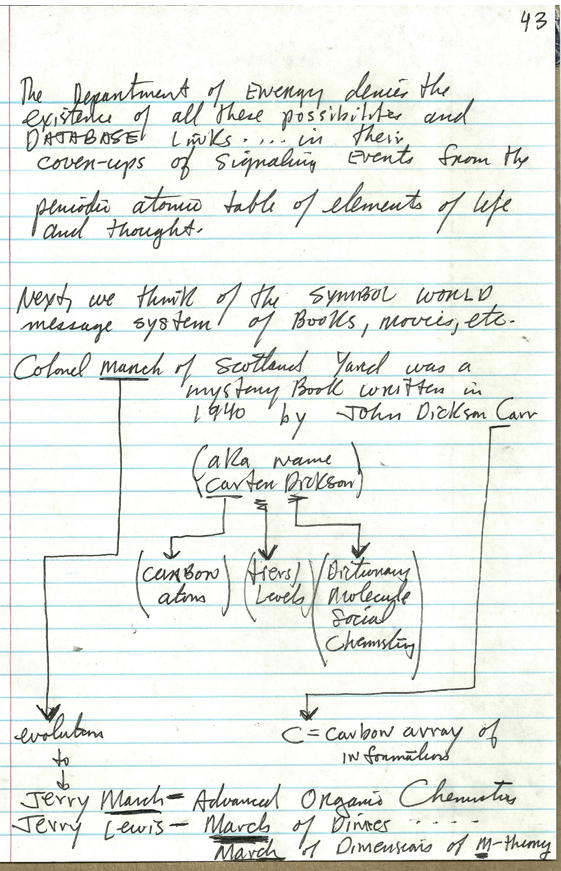 43
The Department of Energy denies the
existence of all these possibilities and
DATABASE Links.... in their
cover-ups of Signaling Events from the
periodic atomic table of elements of life
and thought.
Next, we think of the SYMBOL WORLD
message system of Books, movies, etc.
Colonel March of Scotland Yard was a
mystery Book written in
1940 by John Dickson Carr
(aka name
Carter Dickson)
(carbon atoms) (tiers/ Levels) (Dictionary Molecule Social Chemistry)
evolution
to
C = carbon array of
informations
Jerry March = Advanced Organic Chemistry
Jerry Lewis - March of Dimes .....
March of Dimensions of M-theory